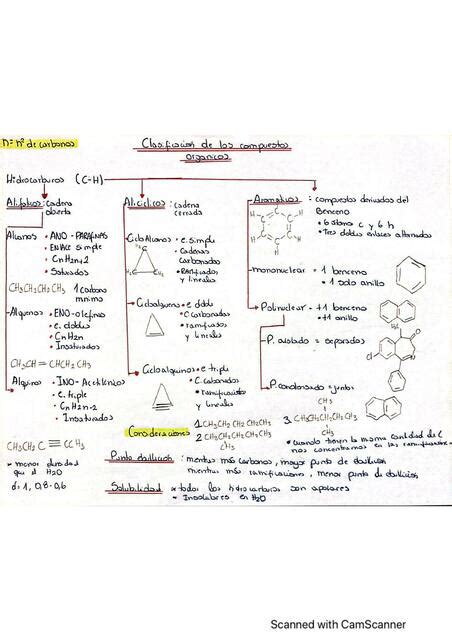 n= nº de carbonos
Clasificacion de los compuestos
organicos
Hidrocarburos (C-H)
Alifaticos: cadena
abierta
Alcanos • ANO - PARAFINAS
• ENLACE simple
• CnH2n+2
• Saturados
CH3CH2CH2CH3 1 carbono
minimo
Alquenos • ENO - olefinas
• e. dobles
• CnH2n
• Insaturados
CH3CH = CHCH2CH3
Alquino • INO - Acetilenios
• e. triple
• CnH2n-2
• Insaturados
CH3CH2C ≡ CCH3
* menor densidad
que el H2O
d=1, 0,8-0,6
Aliciclicos: cadena
cerrada
Cicloalcanos • e. simple
• Cadenas
Carbonadas
• Ramificados
y lineales
Cicloalquenos • e. doble
• C. carbonadas
• ramificados
y lineales
Cicloalquinos • e. triple
• C. cabonadas
• ramificados
y lineales
Aromaticos: compuestos derivados del
Benceno
• 6 atomo c y 6 h
• Tres dobles enlaces alternados
H
mononuclear • 1 benceno
• 1 solo anillo
Polinuclear • +1 benceno
• +1 anillo
P. aislado = separados
Cl
O
P. condensado = juntos
Consideraciones
1. CH3CH2CH2CH2CH3
2. CH3CH2CH2CH2CH3
CH3
CH3
* Cuando tienen la misma cantidad de C
nos concentramos en las ramificaciones
Punto ebullicion: mientras más carbonos, mayor punto de ebullicion
mientras más ramificaciones, menor punto de ebullicion
Solubilidad * todos los hidrocarburos son apolares
* Insolubles en H2O
Scanned with CamScanner